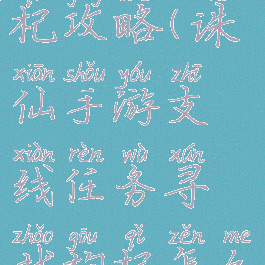 杞攻略(诛
xiān shǒu yóu zhī
仙手游支
xiàn rèn wù xún
线任务寻
zhǎo gǒu qǐ zěn me
找枸杞怎么